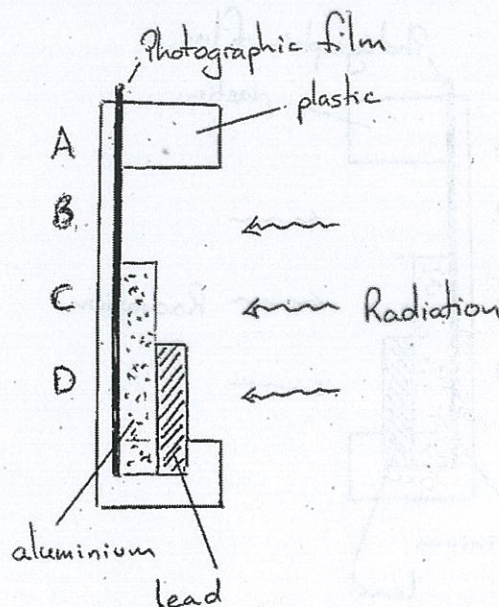 Photographic film
plastic
A
B
C
Radiation
D
aluminium
lead